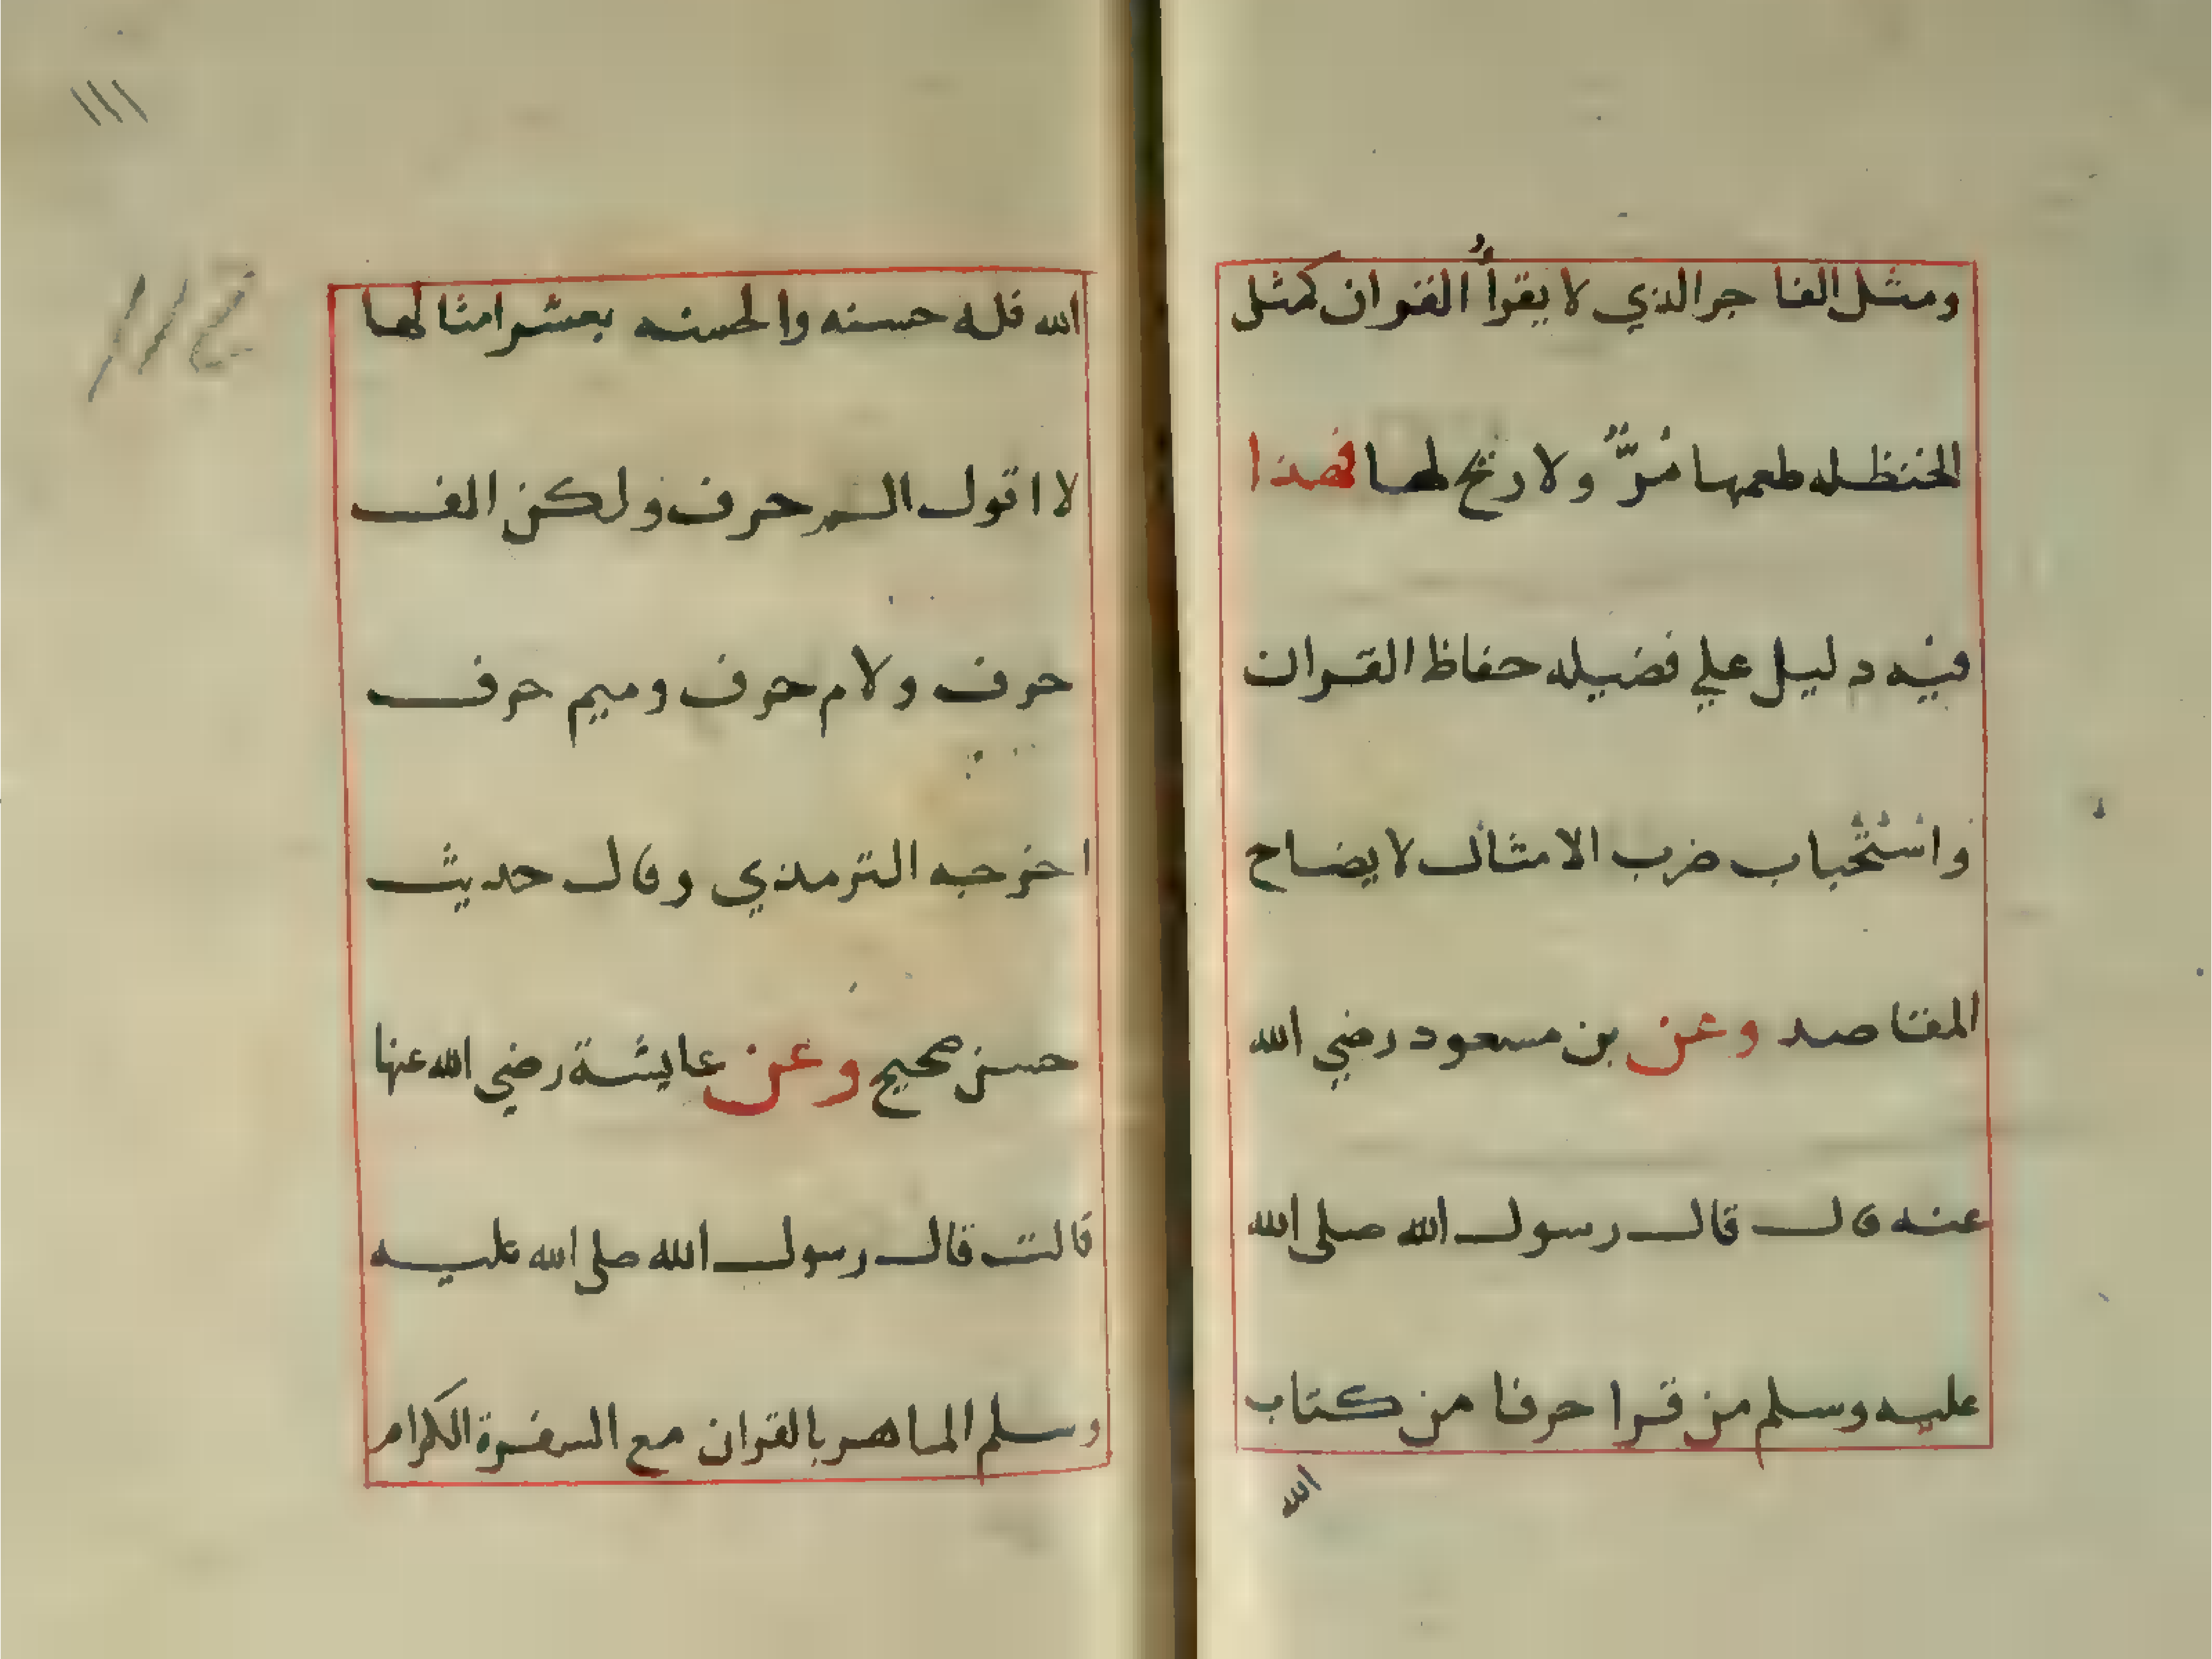 ومثل الفاجر الذي لا يقرأُ القران كمثل
الحنظله طعمها مُرٌّ ولا ريح لها فهذا
فيه دليل علي فضيله حفاظ القران
واسْتحْباب ضرب الامثال لايضاح
المقاصد وعن بن مسعود رضي الله
عنه قال قال رسول الله صلى الله
عليه وسلم من قرا حرفا من كتاب
الله
١١١
112
الله فله حسنه والحسنه بعشر امثالها
لا اقول الم حرف ولكن الف
حرف ولام حرف وميم حرف
اخرجه الترمذي وقال حديث
حسن صحيح وعن عايشة رضي الله عنها
قالت قال رسول الله صلى الله عليه
وسلم الماهر بالقران مع السفرة الكرام